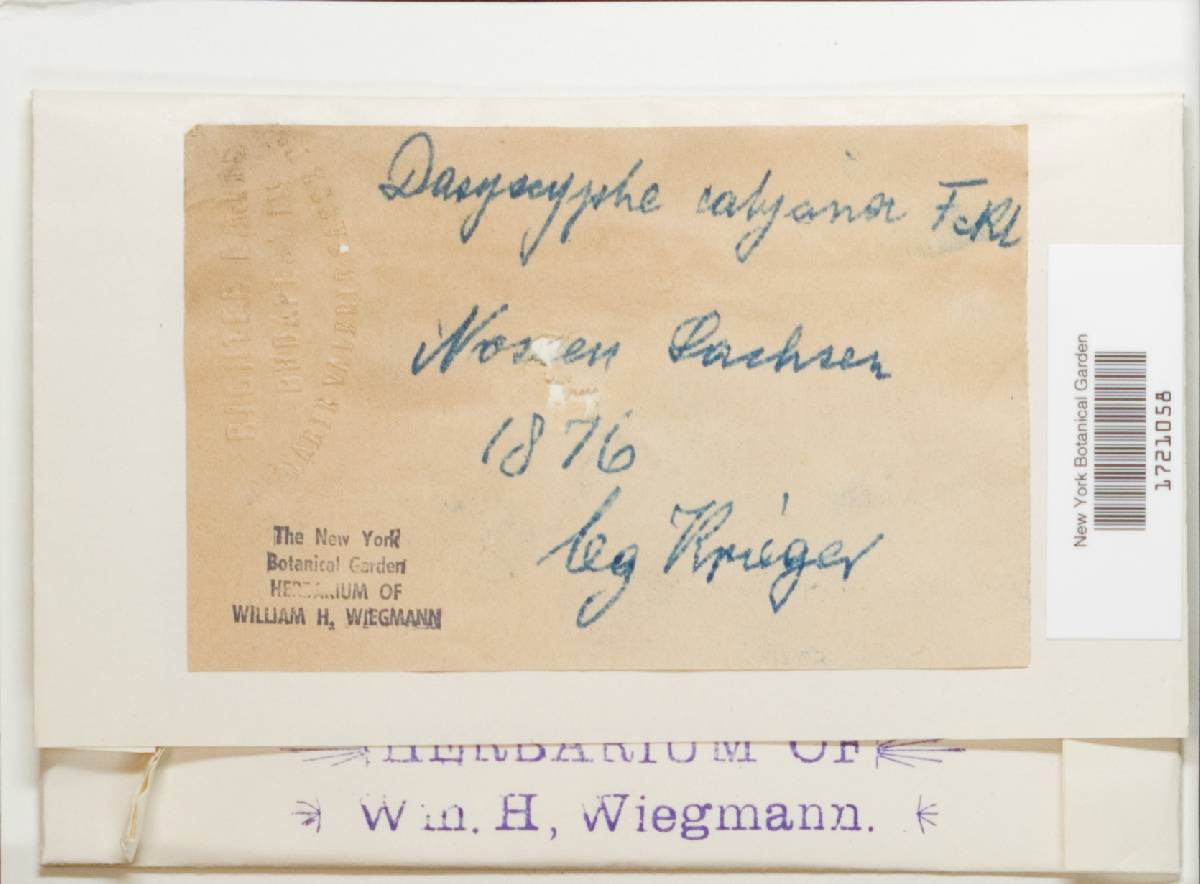 Dasyscyphe calycina Fckl
Nossen Sachsen
1876
leg Krieger
The New York
Botanical Garden
HERBARIUM OF
WILLIAM H. WIEGMANN
New York Botanical Garden
1721058
HERBARIUM OF
Wm. H, Wiegmann.